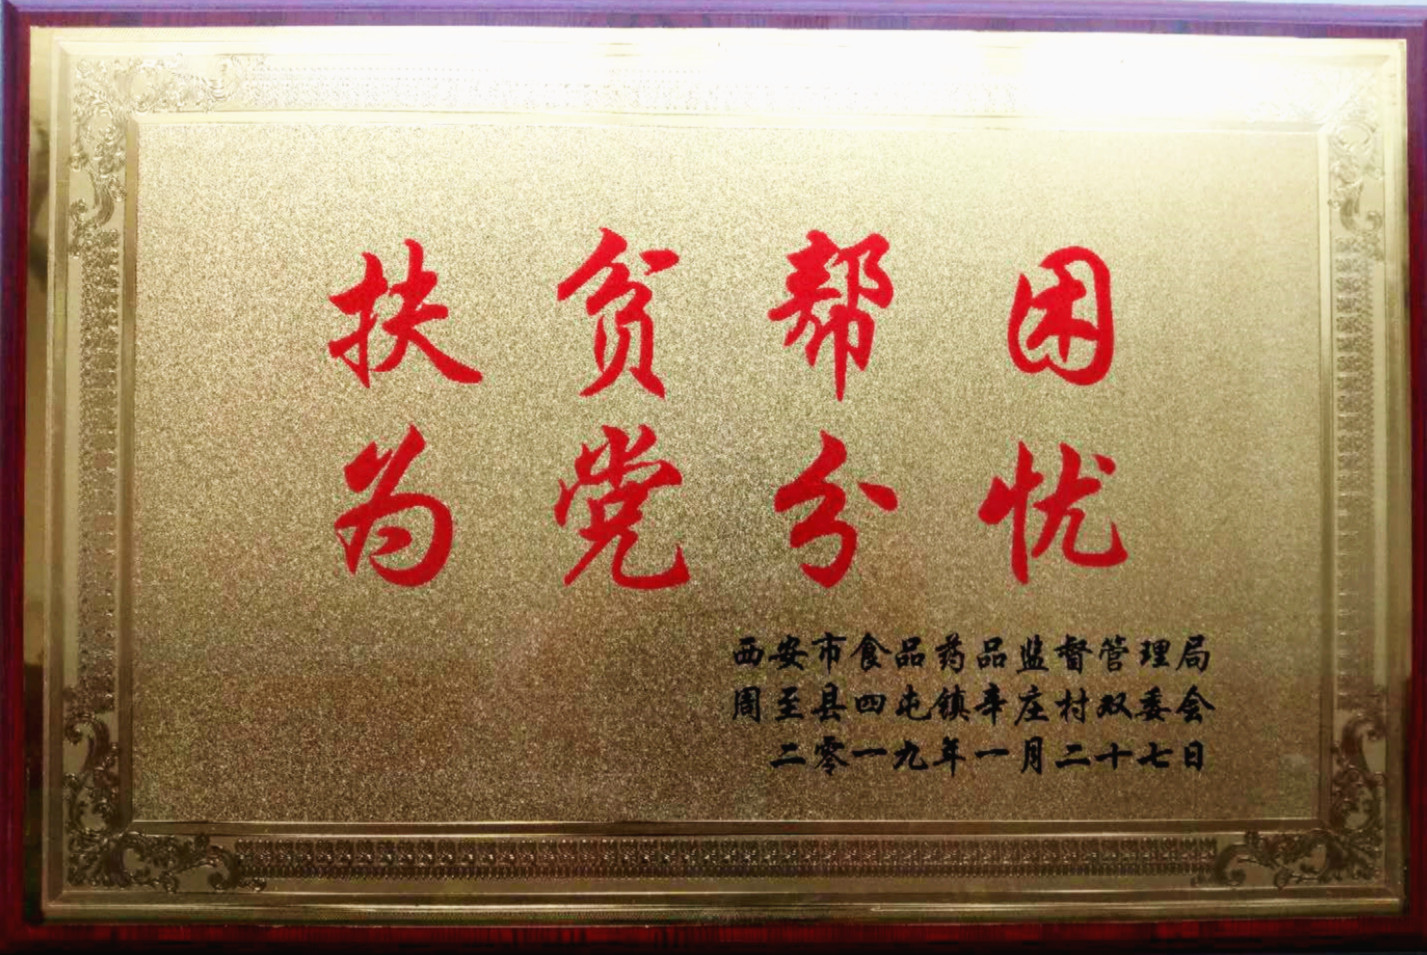 扶贫帮困
为党分忧
西安市食品药品监督管理局
周至县四屯镇辛庄村双委会
二零一九年一月二十七日